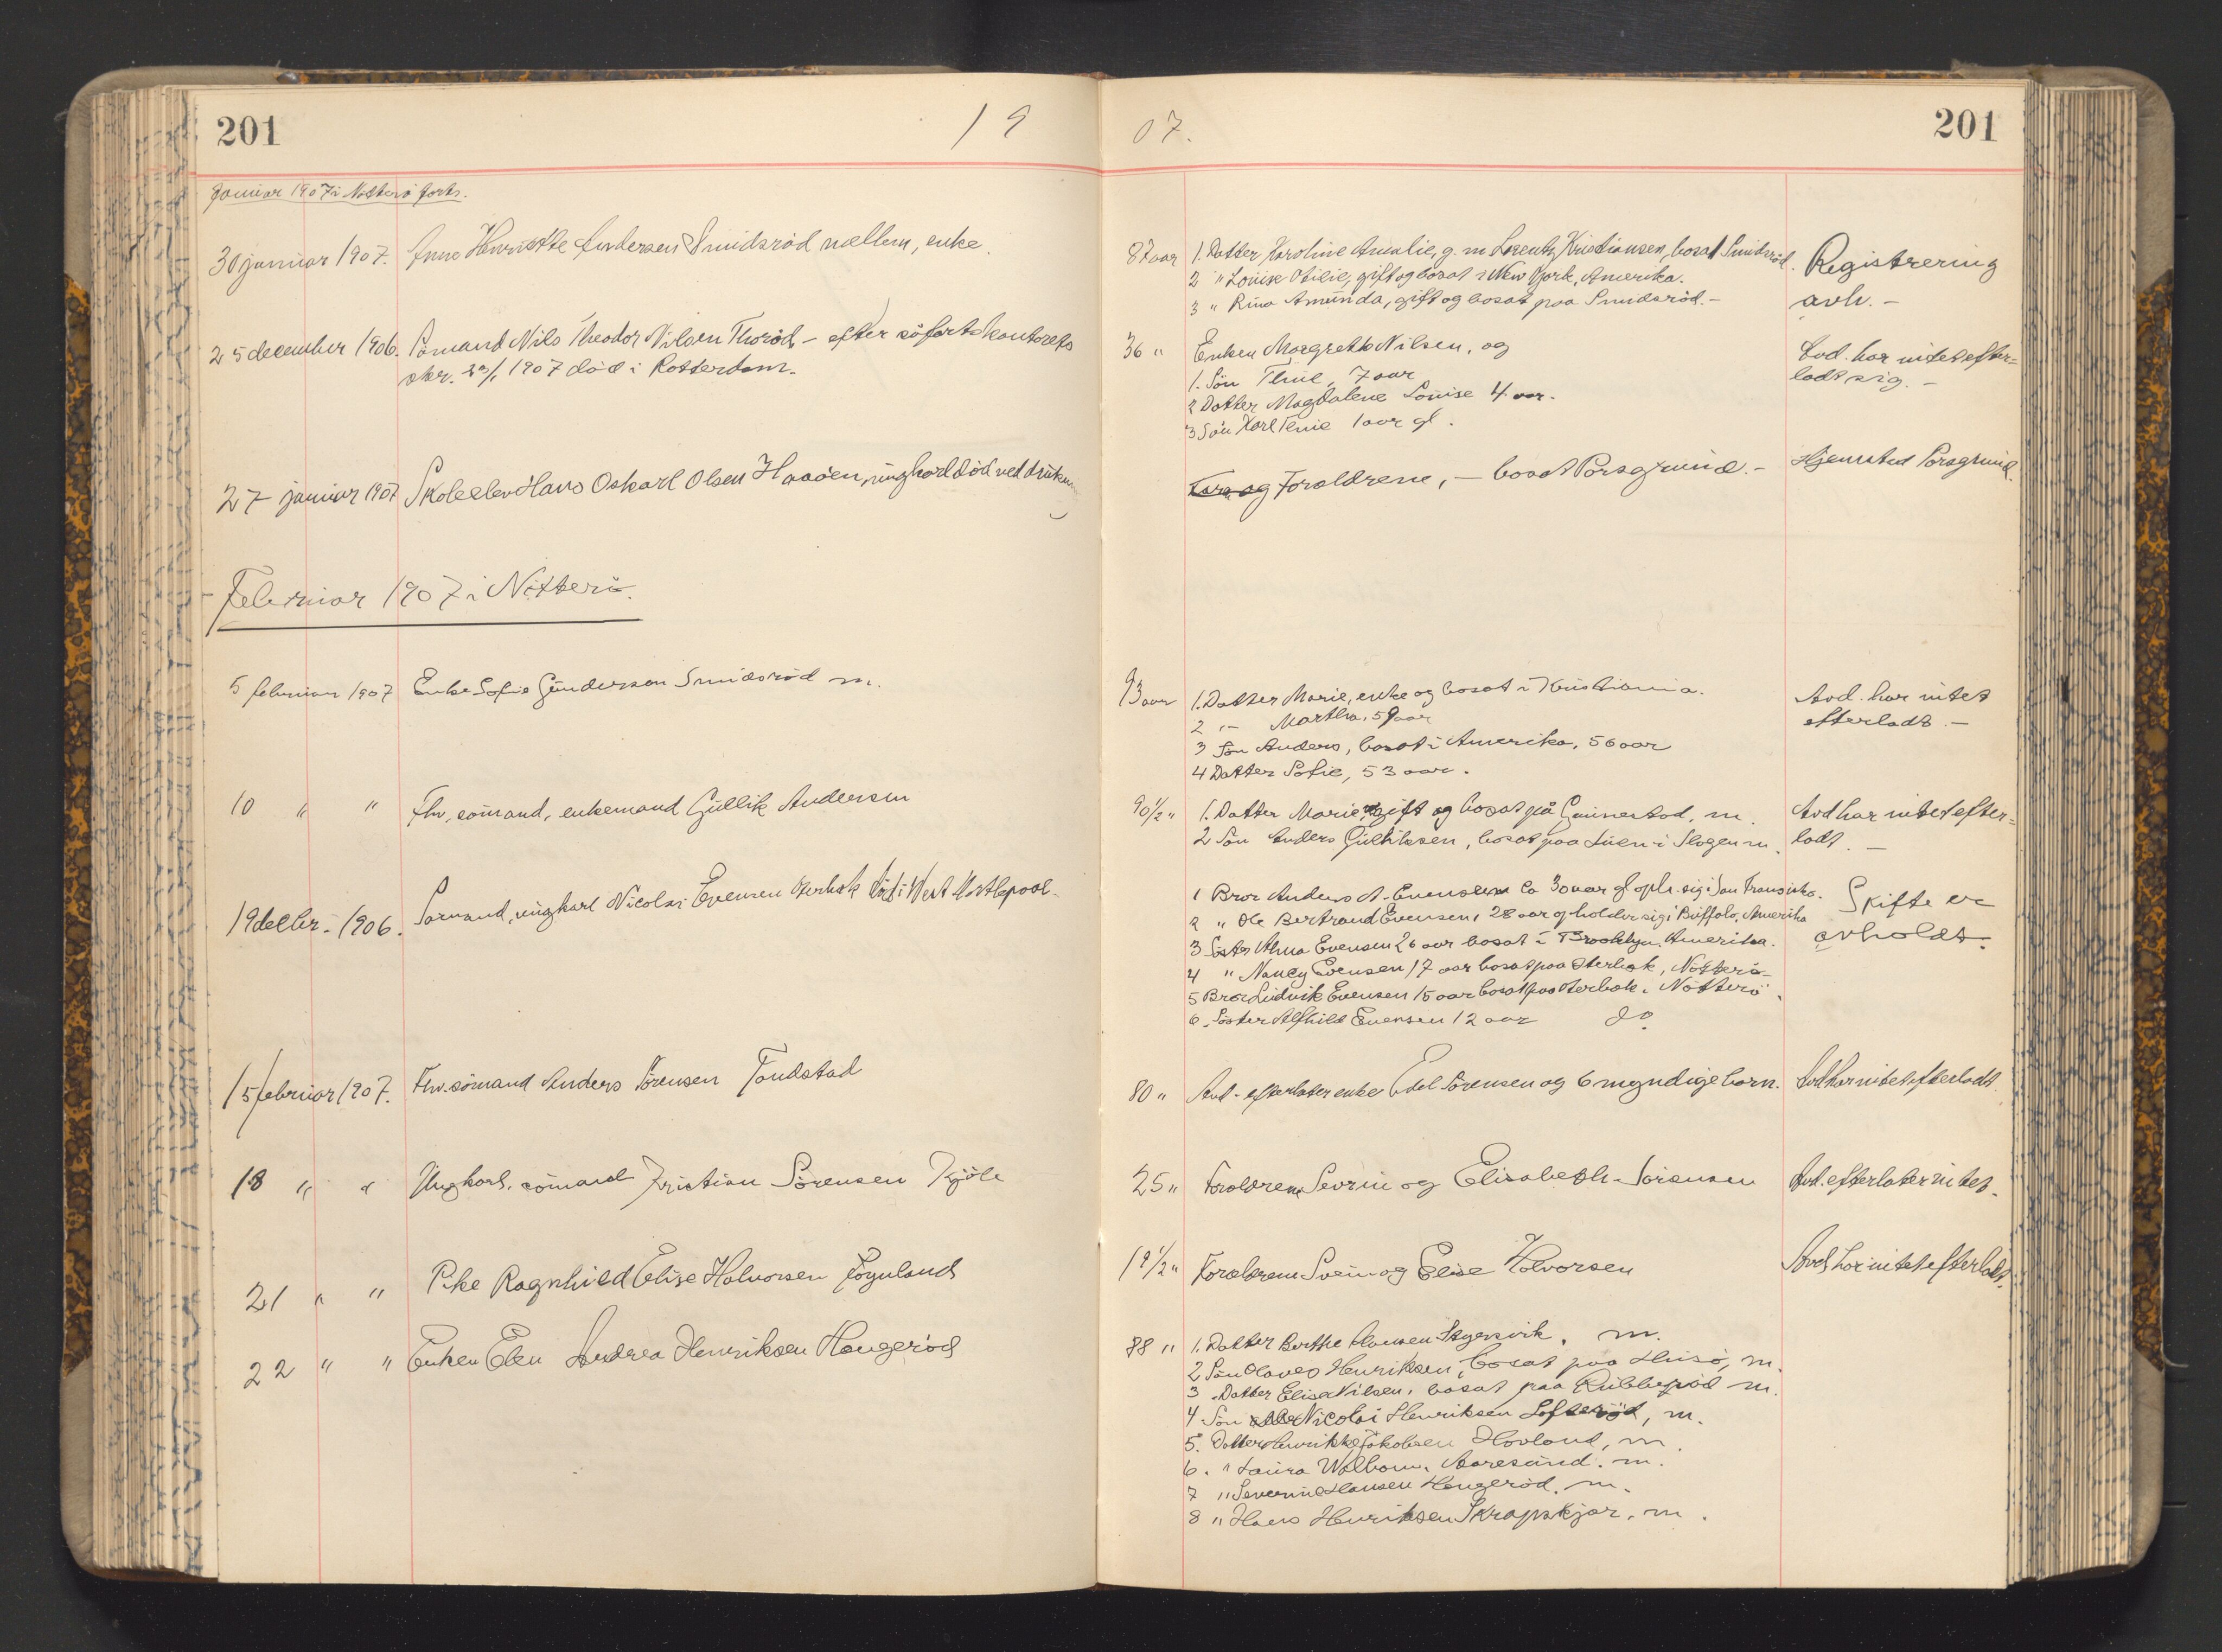 201
19
07.
201
Januar 1907 i Nötterö forts.
30 januar 1907. Anne Henriette Andersen Smidsröd mellem, enke.
87 aar 1. Datter Karoline Amalie, g. m Lorentz Kristiansen, bosat Smidsröd.
2 " Louise Otilie, gift og bosat i New York, Amerika.
3 " Rina Amunda, gift og bosat paa Smidsröd. -
Registrering
avh. -
25 december 1906. Sömand Nils Theodor Nilsen Thoröd - efter söfartskontorets
skr. 1907 död i Rotterdam.
36 " Enken Margrethe Nilsen, og
1. Sön 7 aar
2 Datter Magdalene Louise 4 aar.
3 Sön Karl 1 aar gl.
Avd. har intet efter=
ladt sig. -
27 januar 1907 Skoleelev Hans Oskarl Olsen Haaöen, ungkarl död ved
og Foraldrene, - bosat Porsgrund. -
Hjemsted Porsgrund.
Februar 1907 i Nötterö.
5 februar 1907 Enke Sofie Gundersen Smidsröd m.
93 aar 1. Datter Marie, enke og bosat i Kristiania.
2 " Martha, 59 aar
3 Sön Anders, bosat i Amerika, 56 aar
4 Datter Sofie, 53 aar.
Avd. har intet
efterladt. -
10 " " Fhv. sömand, enkemand Gullik Andersen
90 1/2 " 1. Datter Marie, gift og bosat på Gunnestad, m.
2 Sön Anders Gulliksen, bosat paa i Slagen m.
Avd har intet efter=
ladt. -
19 decbr. 1906. Sömand, ungkarl Nicolai Evensen Oterbæk död i West Hartlepool -
1 Bror Anders A. Evensen ca 30 aar gl oph. sig i San Fransisko.
2 " Ole Bertrand Evensen, 28 aar og holder sig i Buffalo, Amerika
3 Söster Alma Evensen 26 aar bosat i Brooklyn Amerika.
4 " Nancy Evensen 17 aar bosat paa Oterbæk, Nötterö -
5 Bror Ludvik Evensen 15 aar bosat paa Oterbæk, Nötterö.
6 Söster Alfhild Evensen 12 aar do
Skifte er
avholdt.
15 februar 1907. Fhv. sömand Anders Sörensen Tandstad
80 " Avd - efterlater enke Edel Sörensen og 6 myndige barn.
Avd har intet efterladt
18 " " Ungkarl, sömand Kristian Sörensen Kjöle
25 " Foraldrene Sevrin og Elisabeth Sörensen
Avd. efterlater intet.
21 " " Pike Ragnhild Elise Halvorsen Föynland
19 1/2 " Foraldrene Svein og Elise Halvorsen
Avd har intet efterladt.
22 " " Enken Elen Andrea Henriksen Haugeröd
88 " 1. Datter Berthe Hansen Skjersvik, m.
2 Sön Olaves Henriksen, bosat paa Husö, m.
3 Datter Elise Nilsen, bosat paa Rubberöd m.
4 Sön Nicolai Henriksen Lofteröd, m.
5. Datter Henrikke Jakobsen Hovland, m.
6. " Laura Wolbom, Aaresund. m.
7 " Severine Hansen Haugeröd. m.
8 " Hans Henriksen Skrapskjær, m.